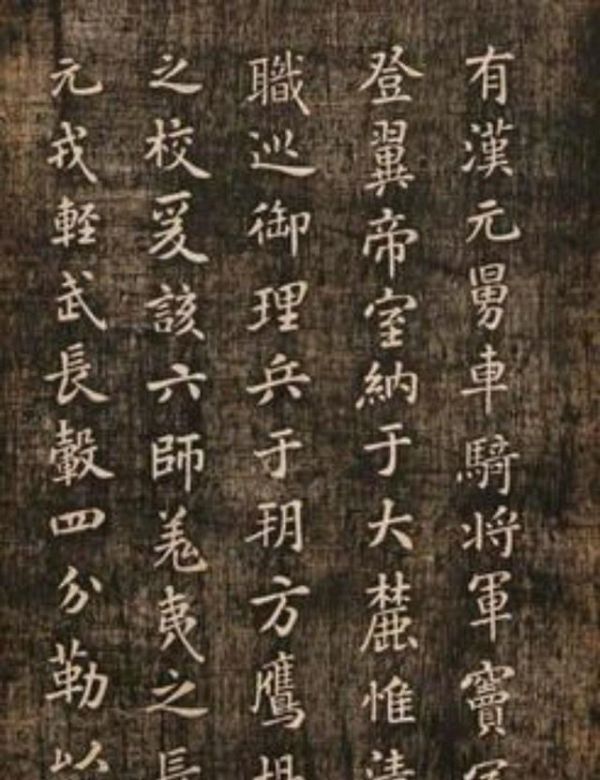 有漢元舅車騎将軍竇
登翼帝室納于大麓惟清
職巡御理兵于朔方鷹
之校爰該六師羌夷之長
元戎軽武長轂四分勒以